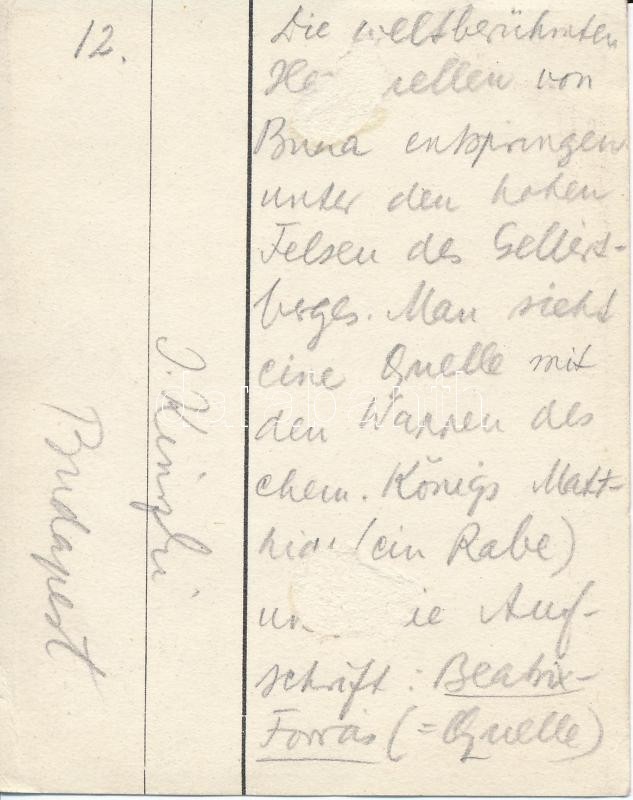 12.
Die weltberühmten
He ellen von
Buda entspringen
unter den hohen
Felsen des Gellért-
berges. Man sieht
eine Quelle mit
den Wappen des
ehem. Königs Matt-
hias (ein Rabe)
un ie Auf-
schrift: Beatrix-
Forrás (=Quelle)
Budapest
darabanth